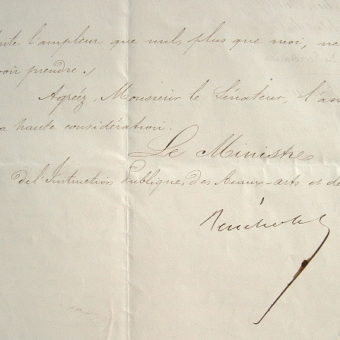 l'ampleur que nul, plus que moi, ne
voir prendre.
Agréez, Monsieur le Sénateur, l'as
a haute considération.
Le Ministre
de l'Instruction Publique, des Beaux-arts et de